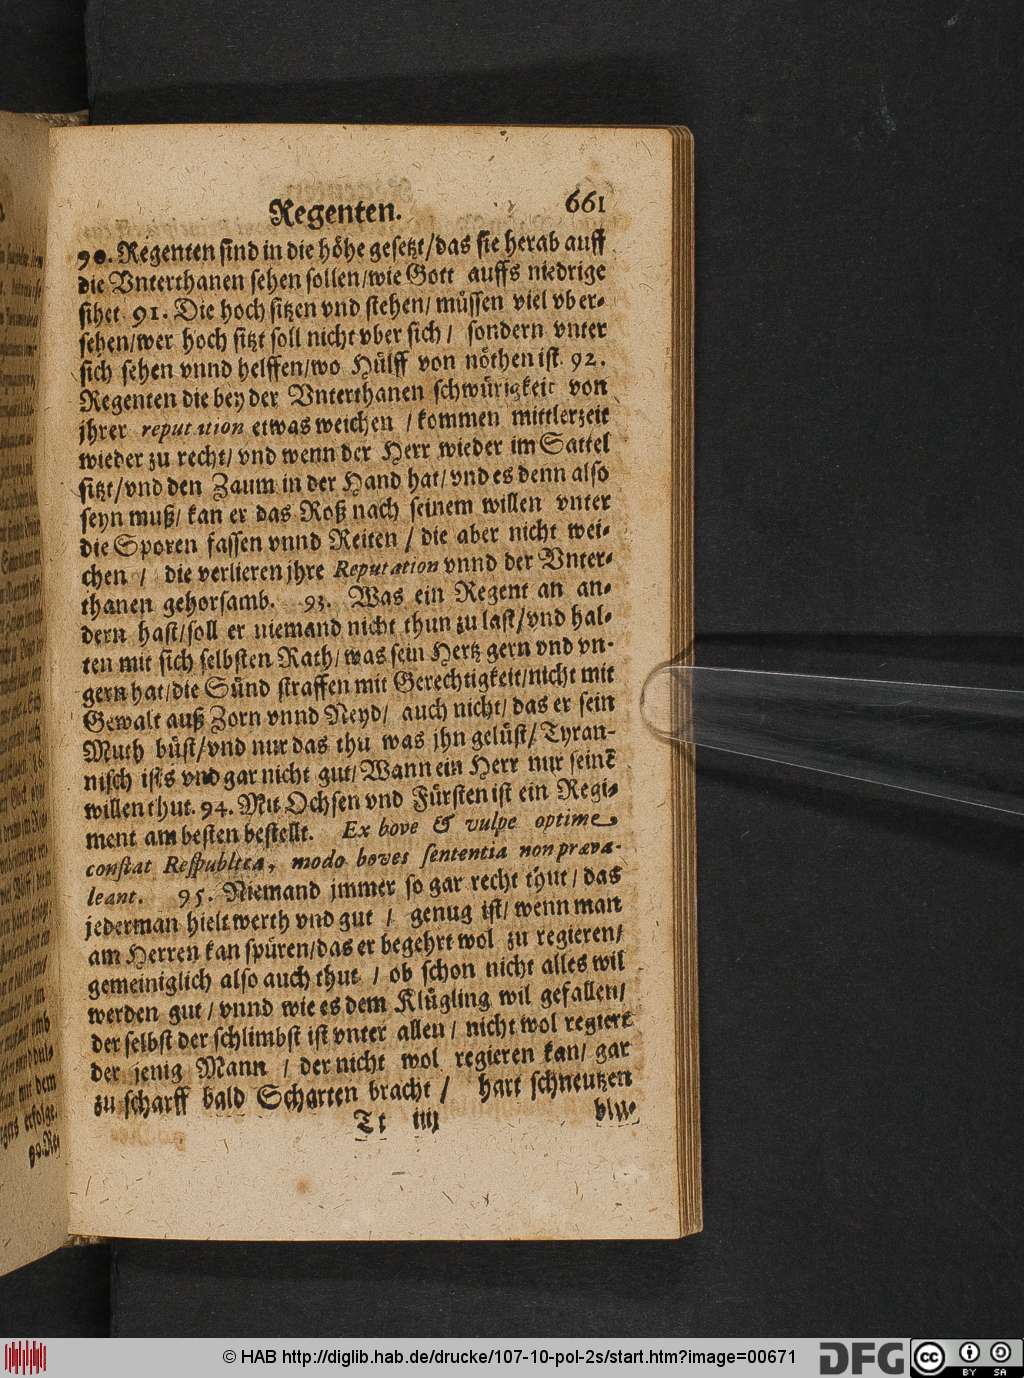 Regenten. 661
90. Regenten sind in die höhe gesetzt/das sie herab auff
die Vnterthanen sehen sollen/wie Gott auffs niedrige
sihet 91. Die hoch sitzen vnd stehen/ müssen viel vber-
sehen/wer hoch sitzt soll nicht vber sich/ sondern vnter
sich sehen vnnd helffen/wo Hülff von nöthen ist. 92.
Regenten die bey der Vnterthanen schwürigkeit von
jhrer reputation etwas weichen / kommen mittlerzeit
wieder zu recht/ vnd wenn der Herr wieder im Sattel
sitzt/vnd den Zaum in der Hand hat/ vnd es denn also
seyn muß/ kan er das Roß nach seinem willen vnter
die Sporen fassen vnnd Reiten / die aber nicht wei-
chen / die verlieren jhre Reputation vnnd der Vnter-
thanen gehorsamb. 93. Was ein Regent an an-
dern hast/soll er niemand nicht thun zu last/vnd hal-
ten mit sich selbsten Rath/was sein Hertz gern vnd vn-
gern hat/die Sünd straffen mit Gerechtigkeit/nicht mit
Gewalt auß Zorn vnnd Neyd/ auch nicht/ das er sein
Muth büst/vnd nur das thu was jhn gelüst/ Tyran-
nisch ists vnd gar nicht gut/ Wann ein Herr nur seinē
willen thut. 94. Mit Ochsen vnd Fürsten ist ein Regi-
ment am besten bestellt. Ex bove & vulpe optime
constat Respublica, modo boves sententia non præva-
leant. 95. Niemand jmmer so gar recht thut/ das
jederman hielt werth vnd gut / genug ist/ wenn man
am Herren kan spüren/das er begehrt wol zu regieren/
gemeiniglich also auch thut / ob schon nicht alles wil
werden gut / vnnd wie es dem Klügling wil gefallen/
der selbst der schlimbst ist vnter allen / nicht wol regiert
der jenig Mann / der nicht wol regieren kan/ gar
zu scharff bald Scharten bracht / hart schneutzen
Tt iiij
© HAB http://diglib.hab.de/drucke/107-10-pol-2s/start.htm?image=00671
DFG
cc
BY SA